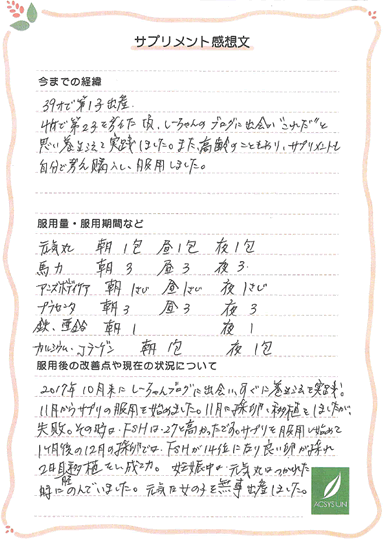 サプリメント感想文
今までの経緯
39才で第1子出産
41才で第2子を考えた頃、しーちゃんのブログに出会い"これだ"と
思い巻きふえて実践しました。また高齢のこともあり、サプリメントも
自分で考え購入し、服用しました。
服用量・服用期間など
元気丸 朝 1包 昼 1包 夜 1包
馬力 朝 3 昼 3 夜 3
朝 1さじ 昼 1さじ 夜 1さじ
プラセンタ 朝 3 昼 3 夜 3
鉄、亜鉛 朝 1 夜 1
カルシウム・コラーゲン 朝 1包 夜 1包
服用後の改善点や現在の状況について
2017年10月末にしーちゃんブログに出会い、すぐに実践。
11月からサプリの服用を始めました。11月に採卵・初植をしましたが、
失敗。その時は、FSHは27と高かったです。サプリを服用し始めて
1ヶ月後の12月の採卵では、FSHが14位になり良い卵が採れ
2日目移植をし成功。妊娠中は元気丸はつかれた
時にのんでいました。元気な女の子を無事出産しました。
AOSYSUN